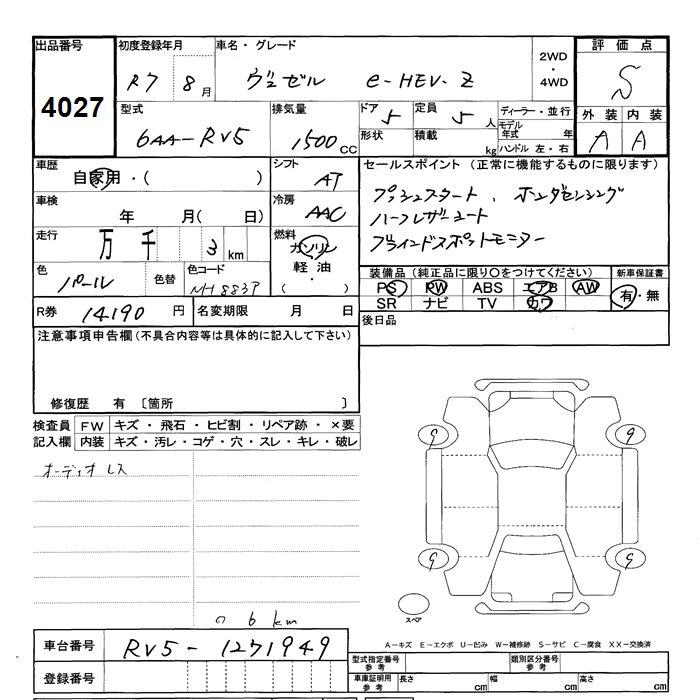 出品番号 初度登録年月 車名・グレード 2WD ・ 4WD 評価点
4027 R7 8月 ヴェゼル e-HEV・Z S
型式 排気量 ドア 5 定員 5人 ディーラー・並行 外装 内装
6AA-RV5 1500cc 形状 積載 kg モデル年式 年 A A
ハンドル 左・右
車歴 シフト セールスポイント (正常に機能するものに限ります)
自家用・( ) AT プッシュスタート、ホンダセンシング
車検 冷房 ハーフレザーシート
年 月( 日) AAC ブラインドスポットモニター
走行 燃料
万 千 3 km ガソリン
色 色替 色コード 軽油・
パール NH883P ( )
装備品 (純正品に限り〇をつけてください) 新車保証書
PS PW ABS エアB AW 有・無
SR ナビ TV カワ
R券 14190 円 名変期限 月 日 後日品
注意事項申告欄 (不具合内容等は具体的に記入して下さい)
修復歴 有 〔箇所 〕
検査員 FW キズ・飛石・ヒビ割・リペア跡・×要
記入欄 内装 キズ・汚レ・コゲ・穴・スレ・キレ・破レ
オーディオレス
9 9
9 9
スペア
6 km
A-キズ E-エクボ U-凹み W-補修跡 S-サビ C-腐食 XX-交換済
車台番号 RV5-1271949
型式指定番号 参考 類別区分番号 参考
登録番号
車庫証明用 参考 長さ cm 幅 cm 高さ cm